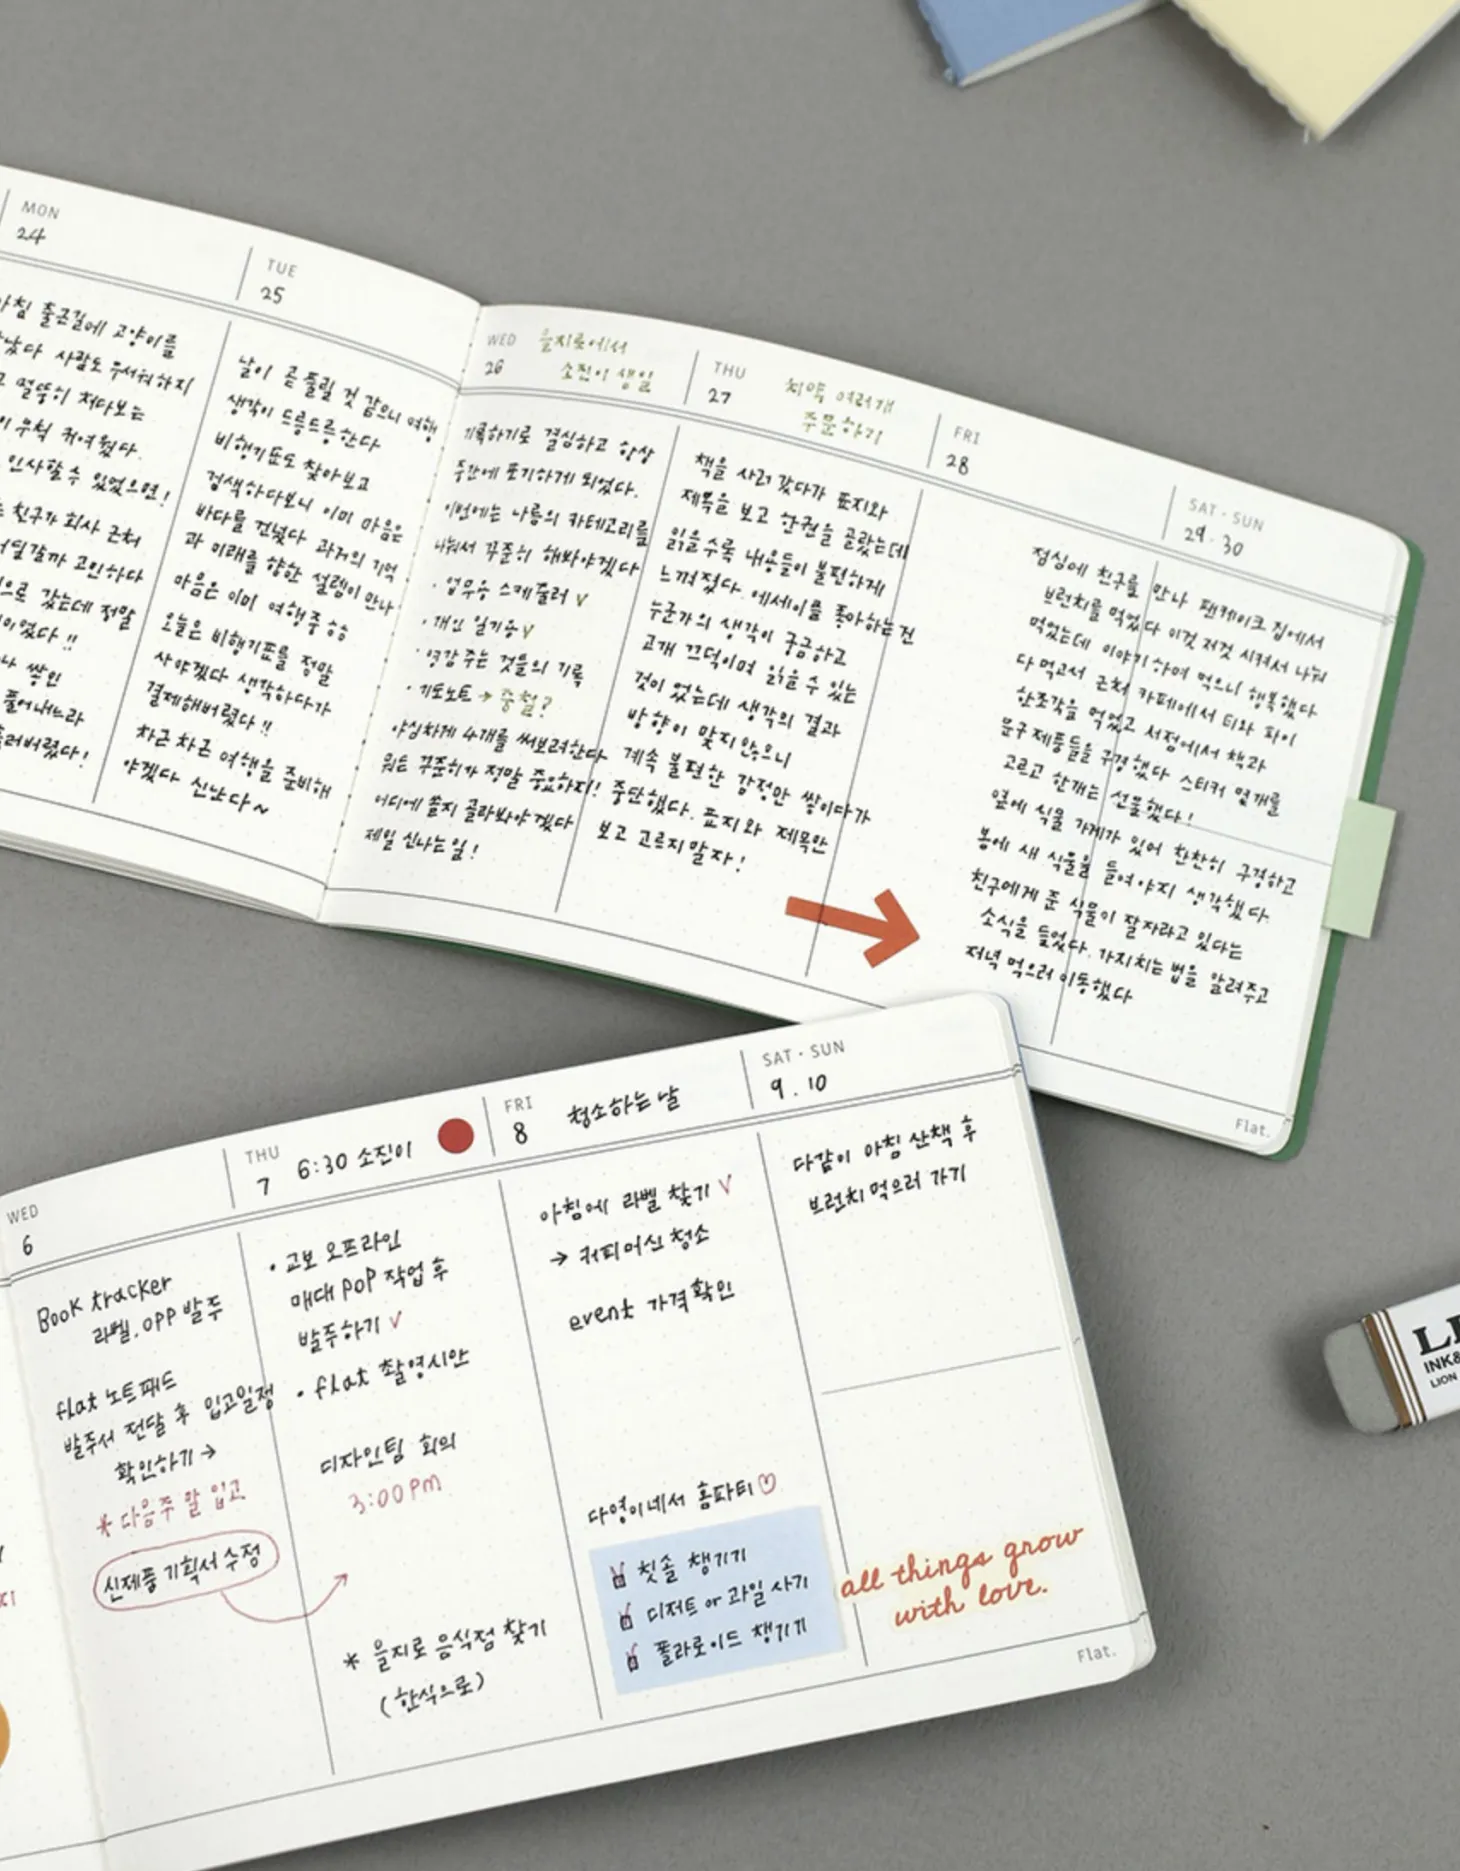 MON
24
아침 출근길에 고양이를
났다 사람도 무서워하지
멀뚱히 쳐다보는
무척 귀여웠다.
인사할 수 있었으면!
친구가 회사 근처
고민하다
으로 갔는데 정말
이었다!!
쌓인
풀어내느라
버렸다!
TUE
25
날이 곧 풀릴 것 같으니 여행
생각이 드릉드릉한다
비행기표도 찾아보고
검색하다보니 이미 마음은
바다를 건넜다 과거의 기억
과 미래를 향한 설렘이 만나
마음은 이미 여행중 슝슝
오늘은 비행기표를 정말
사야겠다 생각하다가
결제해버렸다!!
차근차근 여행을 준비해
야겠다 신난다~
WED
26
을지로에서
소진이 생일
기록하기로 결심하고 항상
중간에 포기하게 되었다.
이번에는 나름의 카테고리를
나눠서 꾸준히 해봐야겠다
· 업무용 스케줄러 v
· 개인 일기용 v
· 영감 주는 것들의 기록
· 기도노트 → 중철?
야심차게 4개를 써보려한다
뭐든 꾸준히가 정말 중요하지!
어디에 쓸지 골라봐야겠다
제일 신나는 일!
THU
27
치약 여러개
주문하기
책을 사러 갔다가 표지와
제목을 보고 한권을 골랐는데
읽을수록 내용들이 불편하게
느껴졌다. 에세이를 좋아하는건
누군가의 생각이 궁금하고
고개 끄덕이며 읽을 수 있는
것이었는데 생각의 결과
방향이 맞지 않으니
계속 불편한 감정만 쌓이다가
중단했다. 표지와 제목만
보고 고르지말자!
FRI
28
SAT · SUN
29. 30
점심에 친구를 만나 팬케이크 집에서
브런치를 먹었다 이것 저것 시켜서 나눠
먹었는데 이야기하며 먹으니 행복했다
다 먹고서 근처 카페에서 티와 파이
한조각을 먹었고 서점에서 책과
문구 제품들을 구경했다 스티커 몇개를
고르고 한개는 선물했다!
옆에 식물 가게가 있어 찬찬히 구경하고
봄에 새 식물을 들여야지 생각했다.
친구에게 준 식물이 잘자라고 있다는
소식을 들었다. 가지치는 법을 알려주고
저녁 먹으러 이동했다
Flat.
WED
6
Book tracker
라벨. opp 발주
flat 노트패드
발주서 전달 후 입고일정
확인하기 →
* 다음주 말 입고
신제품 기획서 수정
THU
7
6:30 소진이
· 교보 오프라인
매대 pop 작업 후
발주하기 v
· flat 촬영시안
디자인팀 회의
3:00pm
* 을지로 음식점 찾기
(한식으로)
FRI
8
청소하는 날
아침에 라벨 찾기 v
→ 커피머신 청소
event 가격확인
다영이네서 홈파티♡
칫솔 챙기기
디저트 or 과일 사기
폴라로이드 챙기기
SAT · SUN
9. 10
다같이 아침 산책 후
브런치 먹으러 가기
all things grow
with love.
Flat.
INK&
LION